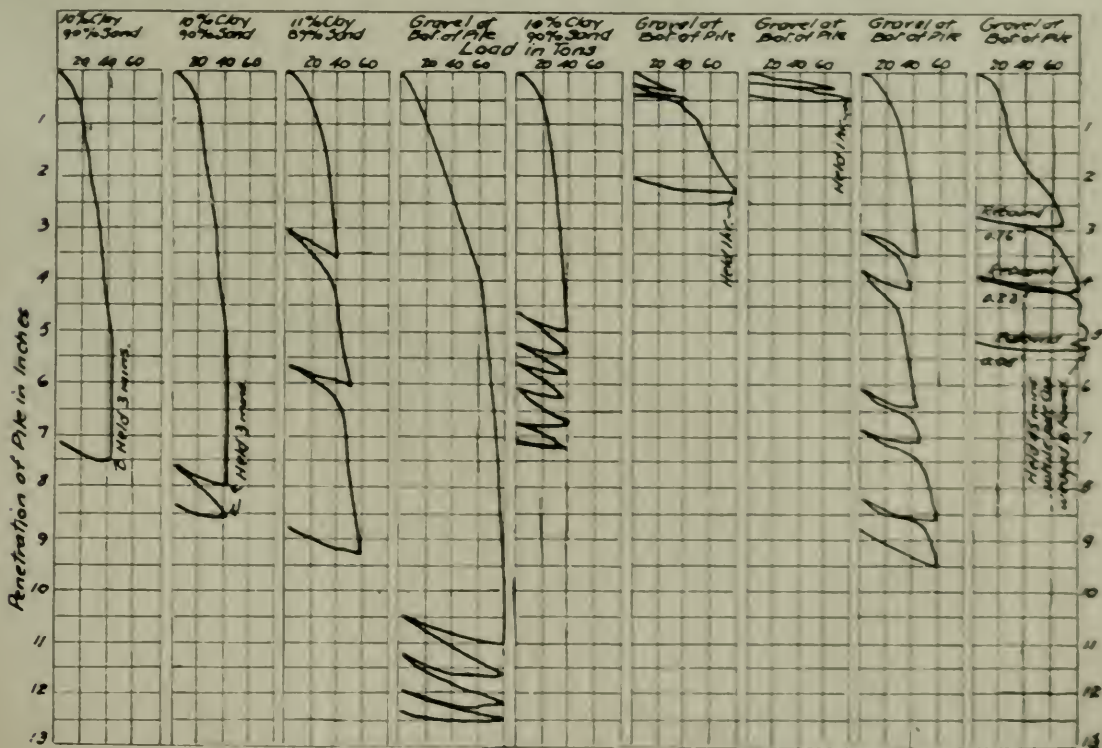 10% Clay
90% Sand
10% Clay
90% Sand
11% Clay
89% Sand
Gravel at
Bot. of Pile
10% Clay
90% Sand
Gravel at
Bot. of Pile
Gravel at
Bot. of Pile
Gravel at
Bot. of Pile
Gravel at
Bot. of Pile
Load in Tons
20 40 60
20 40 60
20 40 60
20 40 60
20 40 60
20 40 60
20 40 60
20 40 60
20 40 60
Penetration of Pile in Inches
1
2
3
4
5
6
7
8
9
10
11
12
13
Held 3 mins.
Held 3 mins.
Held 1 hr.
Held 1 hr.
Rebound
0.76
Rebound
Rebound
Held 45 mins
1
2
3
4
5
6
7
8
9
10
11
12
13